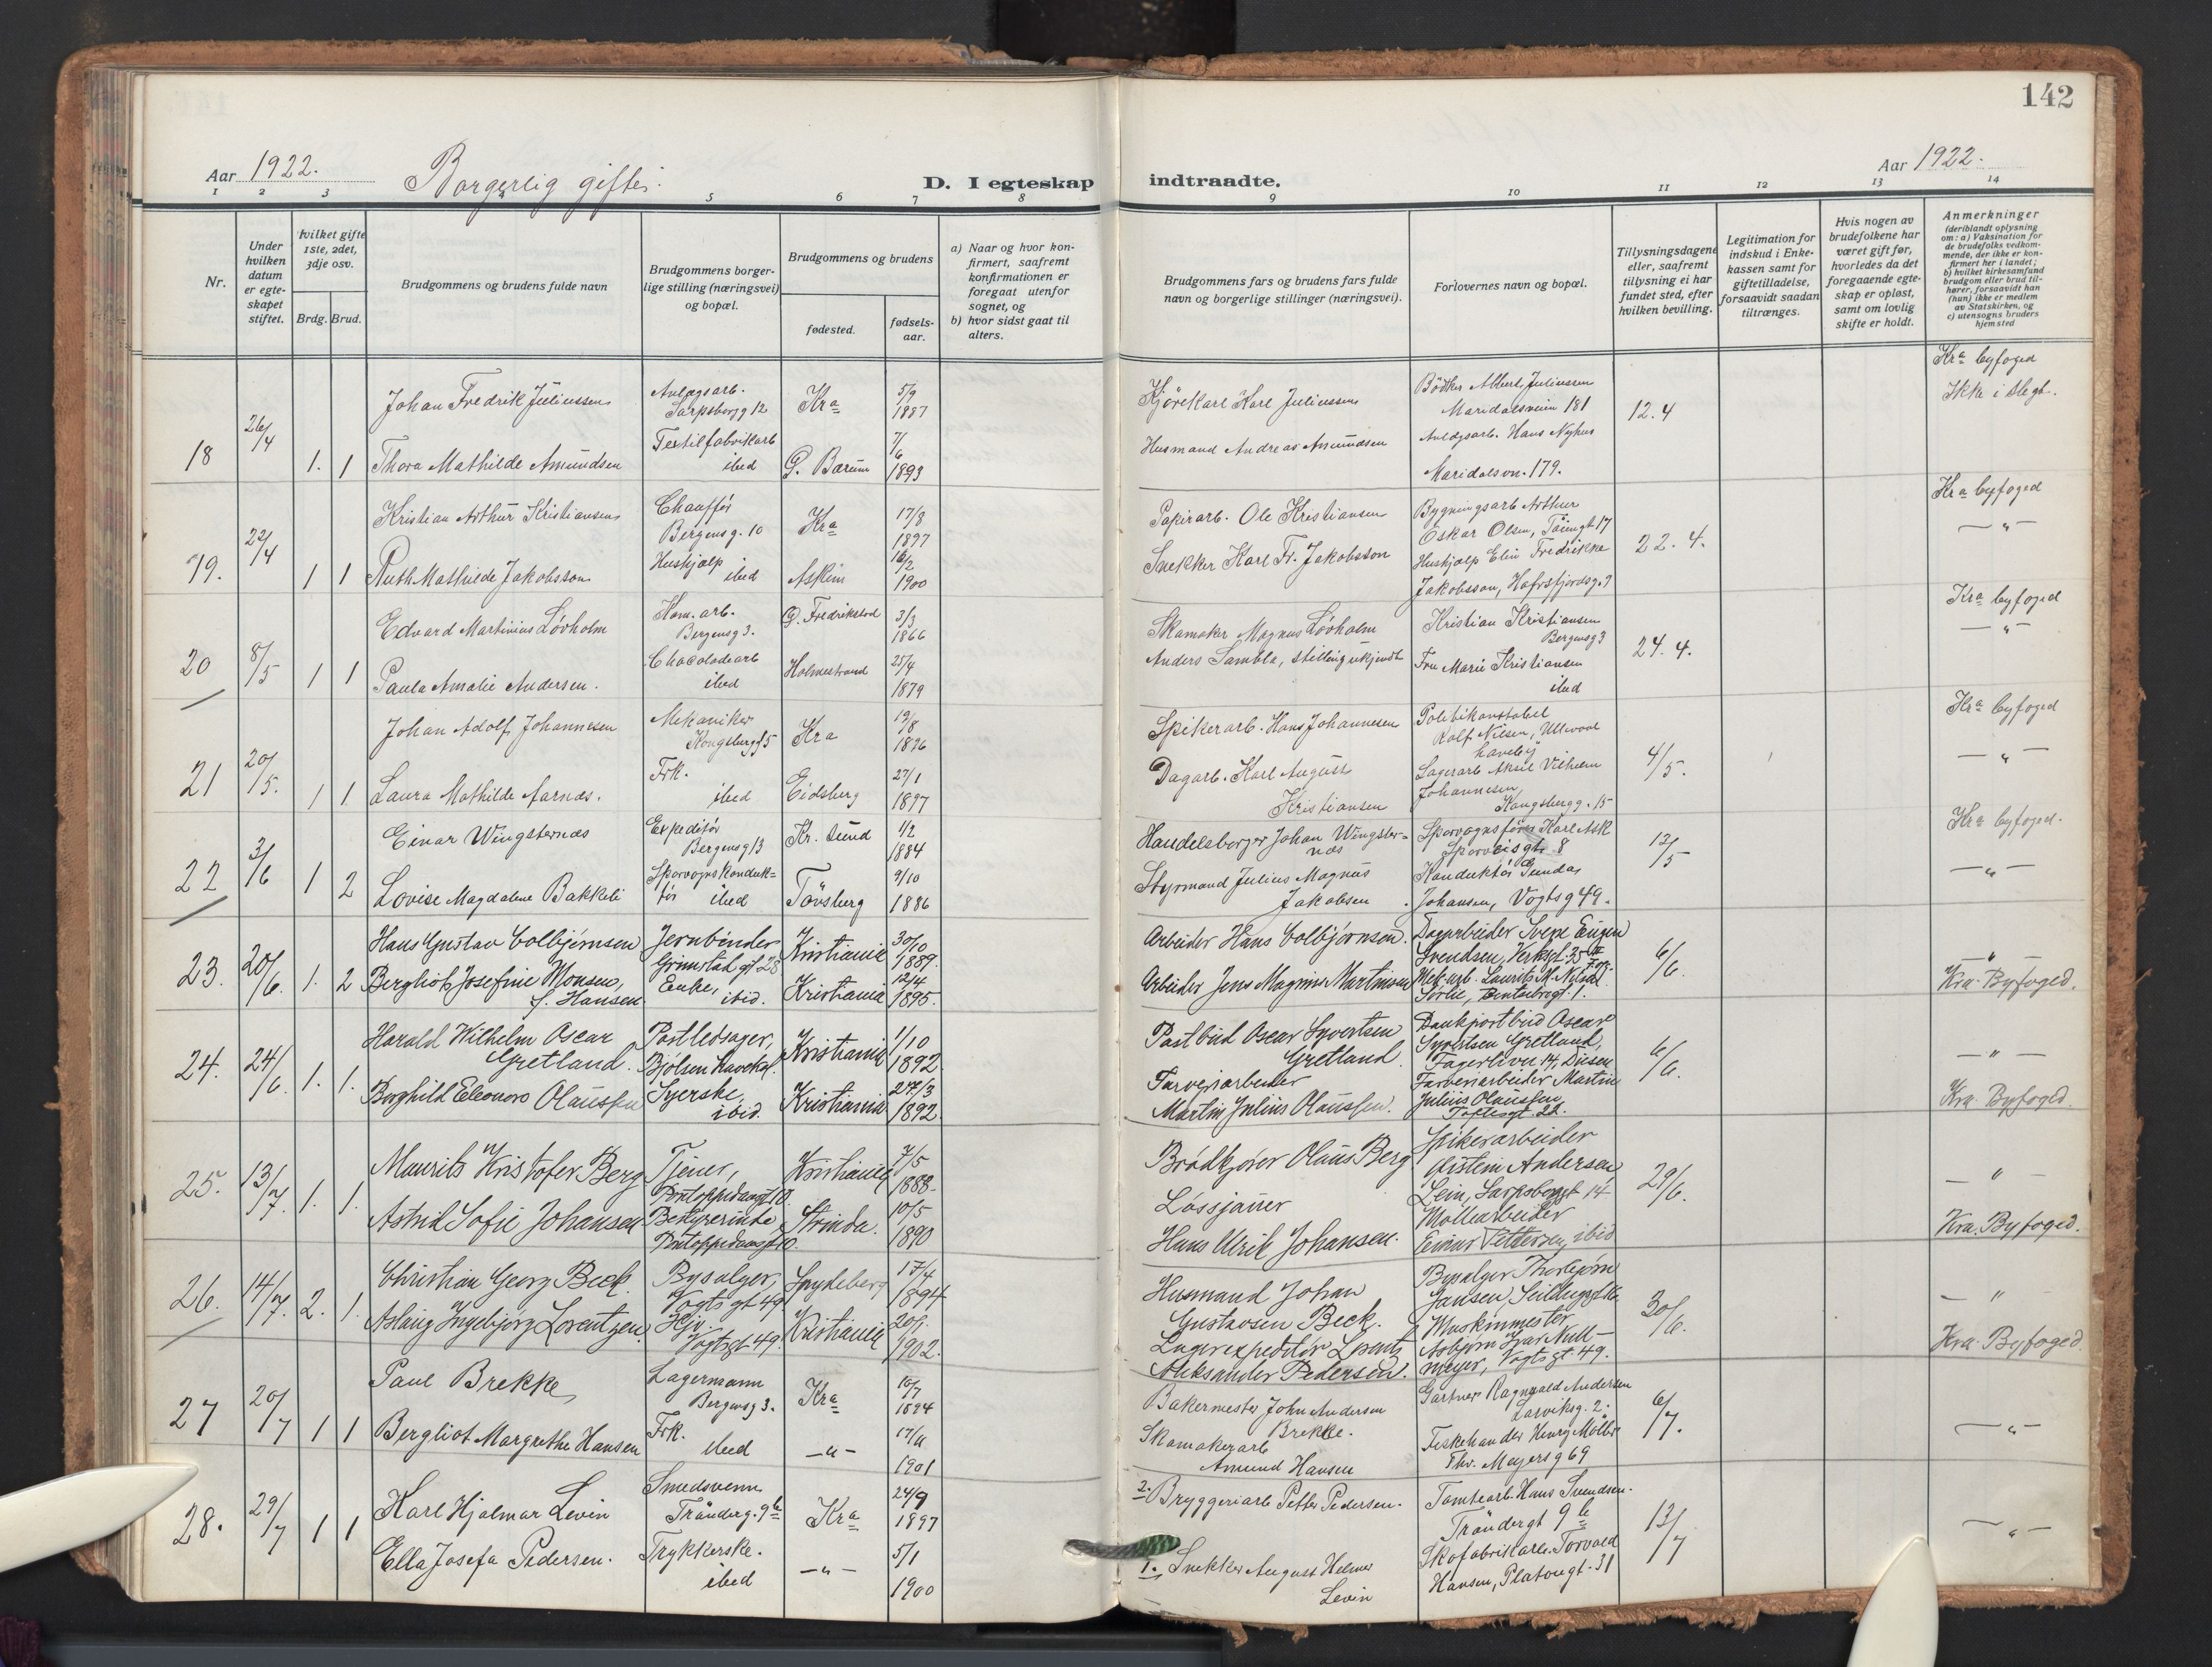 142
Aar 1922.
Borgerlig giftes.
D. I egteskap indtraadte.
Aar 1922.
1 2 3 4 5 6 7 8 9 10 11 12 13 14
Nr.
Under hvilken datum er egte-skapet stiftet.
Hvilket gifte 1ste, 2det, 3dje osv.
Brdg. Brud.
Brudgommens og brudens fulde navn
Brudgommens borger-lige stilling (næringsvei) og bopæl.
Brudgommens og brudens
fødested.
fødsels-aar.
a) Naar og hvor kon-firmert, saafremt konfirmationen er foregaat utenfor sognet, og
b) hvor sidst gaat til alters.
Brudgommens fars og brudens fars fulde navn og borgerlige stillinger (næringsvei).
Forlovernes navn og bopæl.
Tillysningsdagene eller, saafremt tillysning ei har fundet sted, efter hvilken bevilling.
Legitimation for indskud i Enke-kassen samt for giftetilladelse, forsaavidt saadan tiltrænges.
Hvis nogen av brudefolkene har været gift før, hvorledes da det foregaaende egte-skap er opløst, samt om lovlig skifte er holdt.
Anmerkninger (deriblandt oplysning om: a) Vaksination for de brudefolks vedkom-mende, der ikke er kon-firmert her i landet; b) hvilket kirkesamfund brudgom eller brud til-hører, forsaavidt han (hun) ikke er medlem av Statskirken, og c) utensogns bruders hjemsted
18 26/4 1. 1
Johan Fredrik Juliussen
Anlægsarb. Sarpsborgg 12
Kra 5/9 1887
Kjørekarl Karl Juliussen
Bødker Albert Juliussen Maridalsveien 181
12.4
Kra byfoged
Ikke i slegt.
Thora Mathilde Amundsen
Textilfabrikarb ibid
G. Bærum 7/6 1893
Husmand Andreas Amundsen
Anlægsarb. Hans Nyhus Maridalsvn. 179.
19. 22/4 1 1
Kristian Arthur Kristiansen
Chauffør Bergensg. 10
Kra 17/8 1897
Papirarb. Ole Kristiansen
Bygningsarb Arthur Oskar Olsen, Tøiengt 17
22. 4.
Kra byfoged
— " —
Ruth Mathilde Jakobsson
Hushjælp ibid
Askim 16/2 1900
Snekker Karl Fr. Jakobsson
Hushjælp Elin Fredrikke Jakobsson, Hafrsfjordsg. 7
20 8/5 1 1
Edvard Martinius Løvholm
Kom. arb. Bergensg 3.
G. Fredrikstad 3/3 1866
Skomaker Magnus Løvholm
Kristian Kristiansen Bergensg 3
24. 4.
Kra byfoged
— " —
Paula Amalie Andersen.
Chocoladearb ibid
Holmestrand 25/4 1879
Anders Sambla, stilling ukjendt
Fru Marie Kristiansen ibid
21 20/5. 1 1
Johan Adolf Johannesen
Mekaniker Kongsbergg 5
Kra 19/8 1896
Spikerarb. Hans Johannesen
Politikonstabel Rolf Nilsen, Ullevaal haveby
4/5.
Kra byfoged
— " —
Laura Mathilde Aarnæs.
Frk. ibid
Eidsberg 27/1 1897
Dagarb. Karl August Kristiansen
Lagerarb Aksel Vilhelm Johannesen, Kongsbergg. 15
22 3/6 1 2
Einar Wingsternæs
Expeditør Bergensg 13
Kr. sund 1/2 1884
Handelsborger Johan Wingster-næs
Sporvognsfører Karl Ask Sporveisgt. 8
12/5
Kra byfoged.
— " —
Lovise Magdalene Bakkeli
Sporvognskonduk-tør ibid
Tønsberg 9/10 1886
Styrmand Julius Magnus Jakobsen
Konduktør Gunda Johansen, Vogtsg 49.
23. 20/6. 1. 2
Hans Gustav Colbjørnsen
Jernbinder Grimstad gt 28
Kristiania 30/10 1889.
Arbeider Hans Colbjørnsen.
Dagarbeider Svere Eugen Svendsen, Verksgt 35 II
6/6.
— " —
Kra. Byfoged.
Bergliot Josefine Monsen, f. Hansen
Enke, ibid.
Kristiania 12/4 1895.
Arbeider Jens Magnus Martinsen
Mek. arb. Laurits M. Sørlie, 1.
24. 24/6. 1. 1.
Harald Wilhelm Oscar Gretland.
Postledsager, Bjølsen Havekol.
Kristiania 1/10 1892.
Postbud Oscar Syvertsen Gretland
Bankpostbud Oscar Syvertsen Gretland, Fagerlivn 14, Disen
6/6.
— " —
Kra. Byfoged.
Borghild Eleonora Olaussen
Syerske, ibid.
Kristiania 27/3 1892.
Farveriarbeider Martin Julius Olaussen.
Farveriarbeider Martin Julius Olaussen, Toftesgt. 22.
25. 13/7. 1. 1.
Maurits Kristofer Berg
Tjener, Pontoppidansgt 10.
Kristiania 7/5 1888.
Brødkjører Olaus Berg
Spikerarbeider Øistein Andersen Lein, Sarpsborggt 14
29/6.
— " —
Kra. Byfoged.
Astrid Sofie Johansen
Bestyrerinde Pontoppidansgt 10.
Strinda. 10/5 1890
Løssjauer Hans Ulrik Johansen.
Møllearbeider Einar Pettersen, ibid
26. 14/7. 2. 1.
Christian Georg Beck.
Bysælger, Vogts gt 49
Spydeberg 17/4 1894
Husmand Johan Gustavsen Beck.
Bysælger Thorbjørn Jansen, Seilduggt
30/6.
— " —
Kra. Byfoged.
Aslaug Ingebjørg Lorentzen.
Hjv. Vogtsgt 49.
Kristiania 20/1. 1902.
Lagerexpeditør Lorentz Aleksander Pedersen.
Maskinmester Asbjørn Ivar Null-meyer, Vogtsgt 49.
27 20/7 1 1
Paul Brekke
Lagermann Bergensg 3.
Kra 10/7 1894
Bakermester John Andersen Brekke.
Gartner Ragnvald Andersen Larviksg. 2.
6/7.
— " —
Bergliot Margrethe Hansen
Frk. ibid
— " — 17/11 1901
Skomakerarb Amund Hansen
Fiskehandler Henry Möller Thv. Meyersg 69
28. 29/7 1 1
Karl Hjalmar Levin
Smedsvenn Trønderg. 9b
Kra 24/9 1897
2. Bryggeriarb Petter Pedersen.
Tomtearb. Hans Svendsen. Trøndergt 9b
13/7
— " —
Ella Josefa Pedersen.
Trykkerske. ibid
— " — 5/1 1900
1. Snekker August Helmer Levin
Skofabrikarb. Torvald Hansen, Platougt. 31